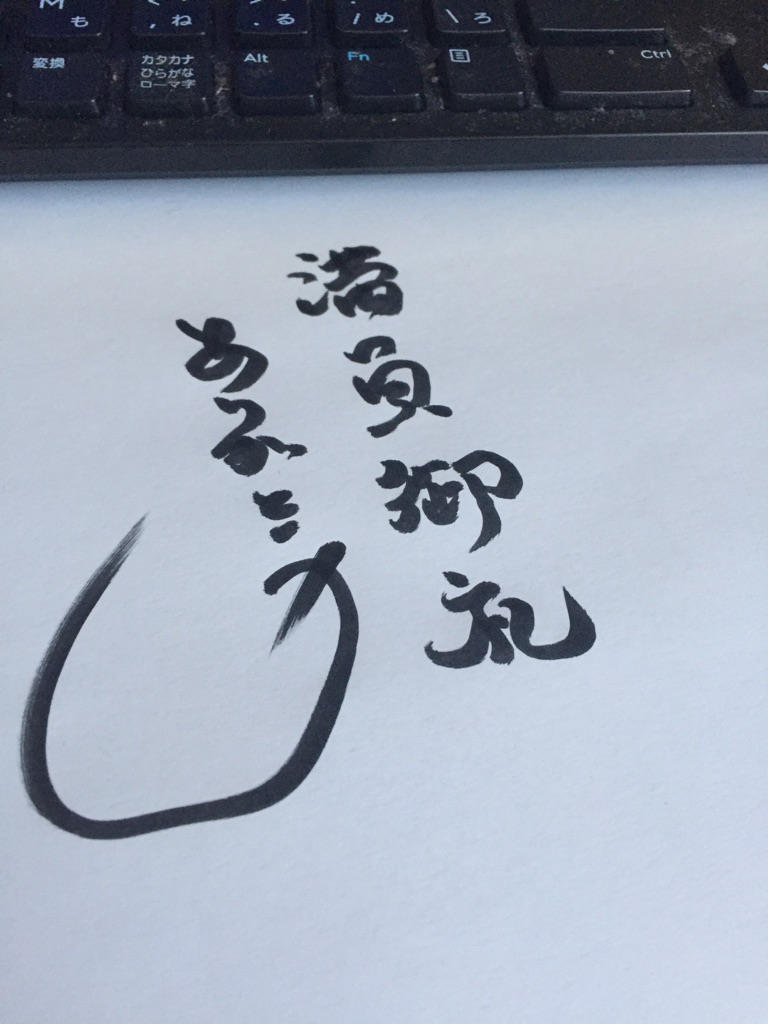 M も
, ね
. る
/ め
\ ろ
変換
カタカナ
ひらがな
ローマ字
Alt
Fn
Ctrl
満員御礼
ありがとう